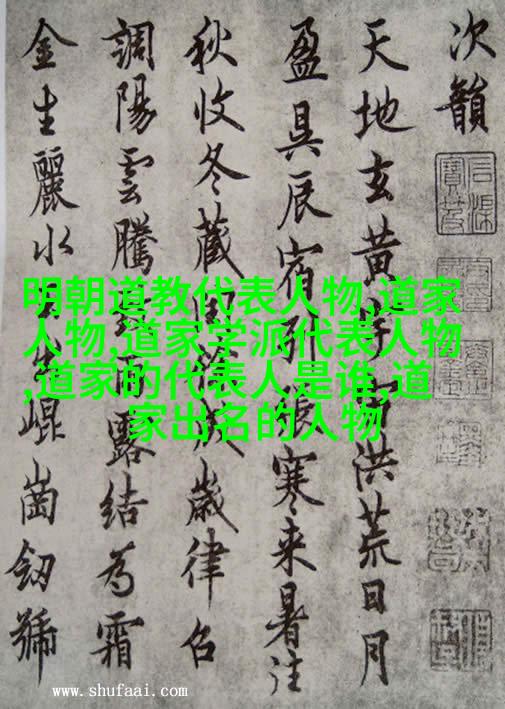 次韻
天地玄黄宇宙洪荒日月
盈昃辰宿列張寒来暑往
秋收冬藏閏餘成歲律召
調陽雲騰致雨露結為霜
金生麗水玉出崐崗劒號
明朝道教代表人物,道家
人物,道家学派代表人物
,道家的代表人是谁,道
家出名的人物
www.shufaai.com